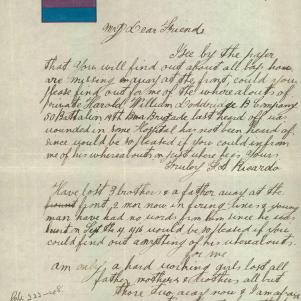 My Dear Friends
I See by the paper
that You will find out about all boys who
are missing away at the front, could you
please find out for me of the whereabouts of
private Harold William Dodridge B Company
50 Battalion 14th Brigade last heard off was
wounded in some Hospital has not been heard of
since would be so pleased if you could inform
me of his whereabouts
Yours
Truley F S Ricardo
Have lost 3 brothers & a father away at the
front, 2 mor now in firing line & young
man have had no word from him since he was
hurt in Sept would be so pleased if you
could find out anything of his whereabouts.
for me
am only a hard working girl lost all
father mother & brothers all but
those two away now